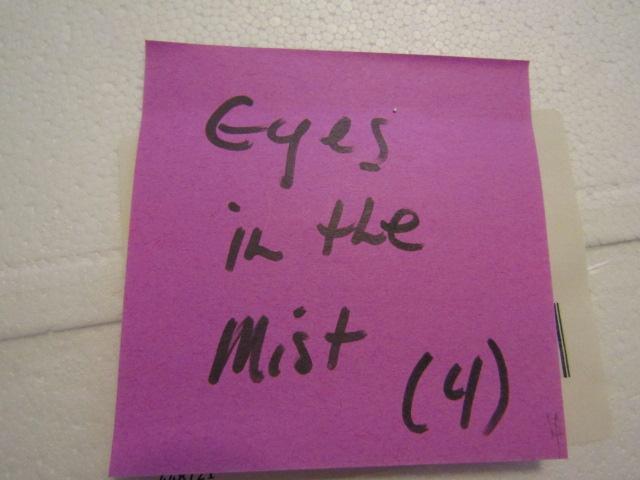 Eyes
in the
Mist
(4)